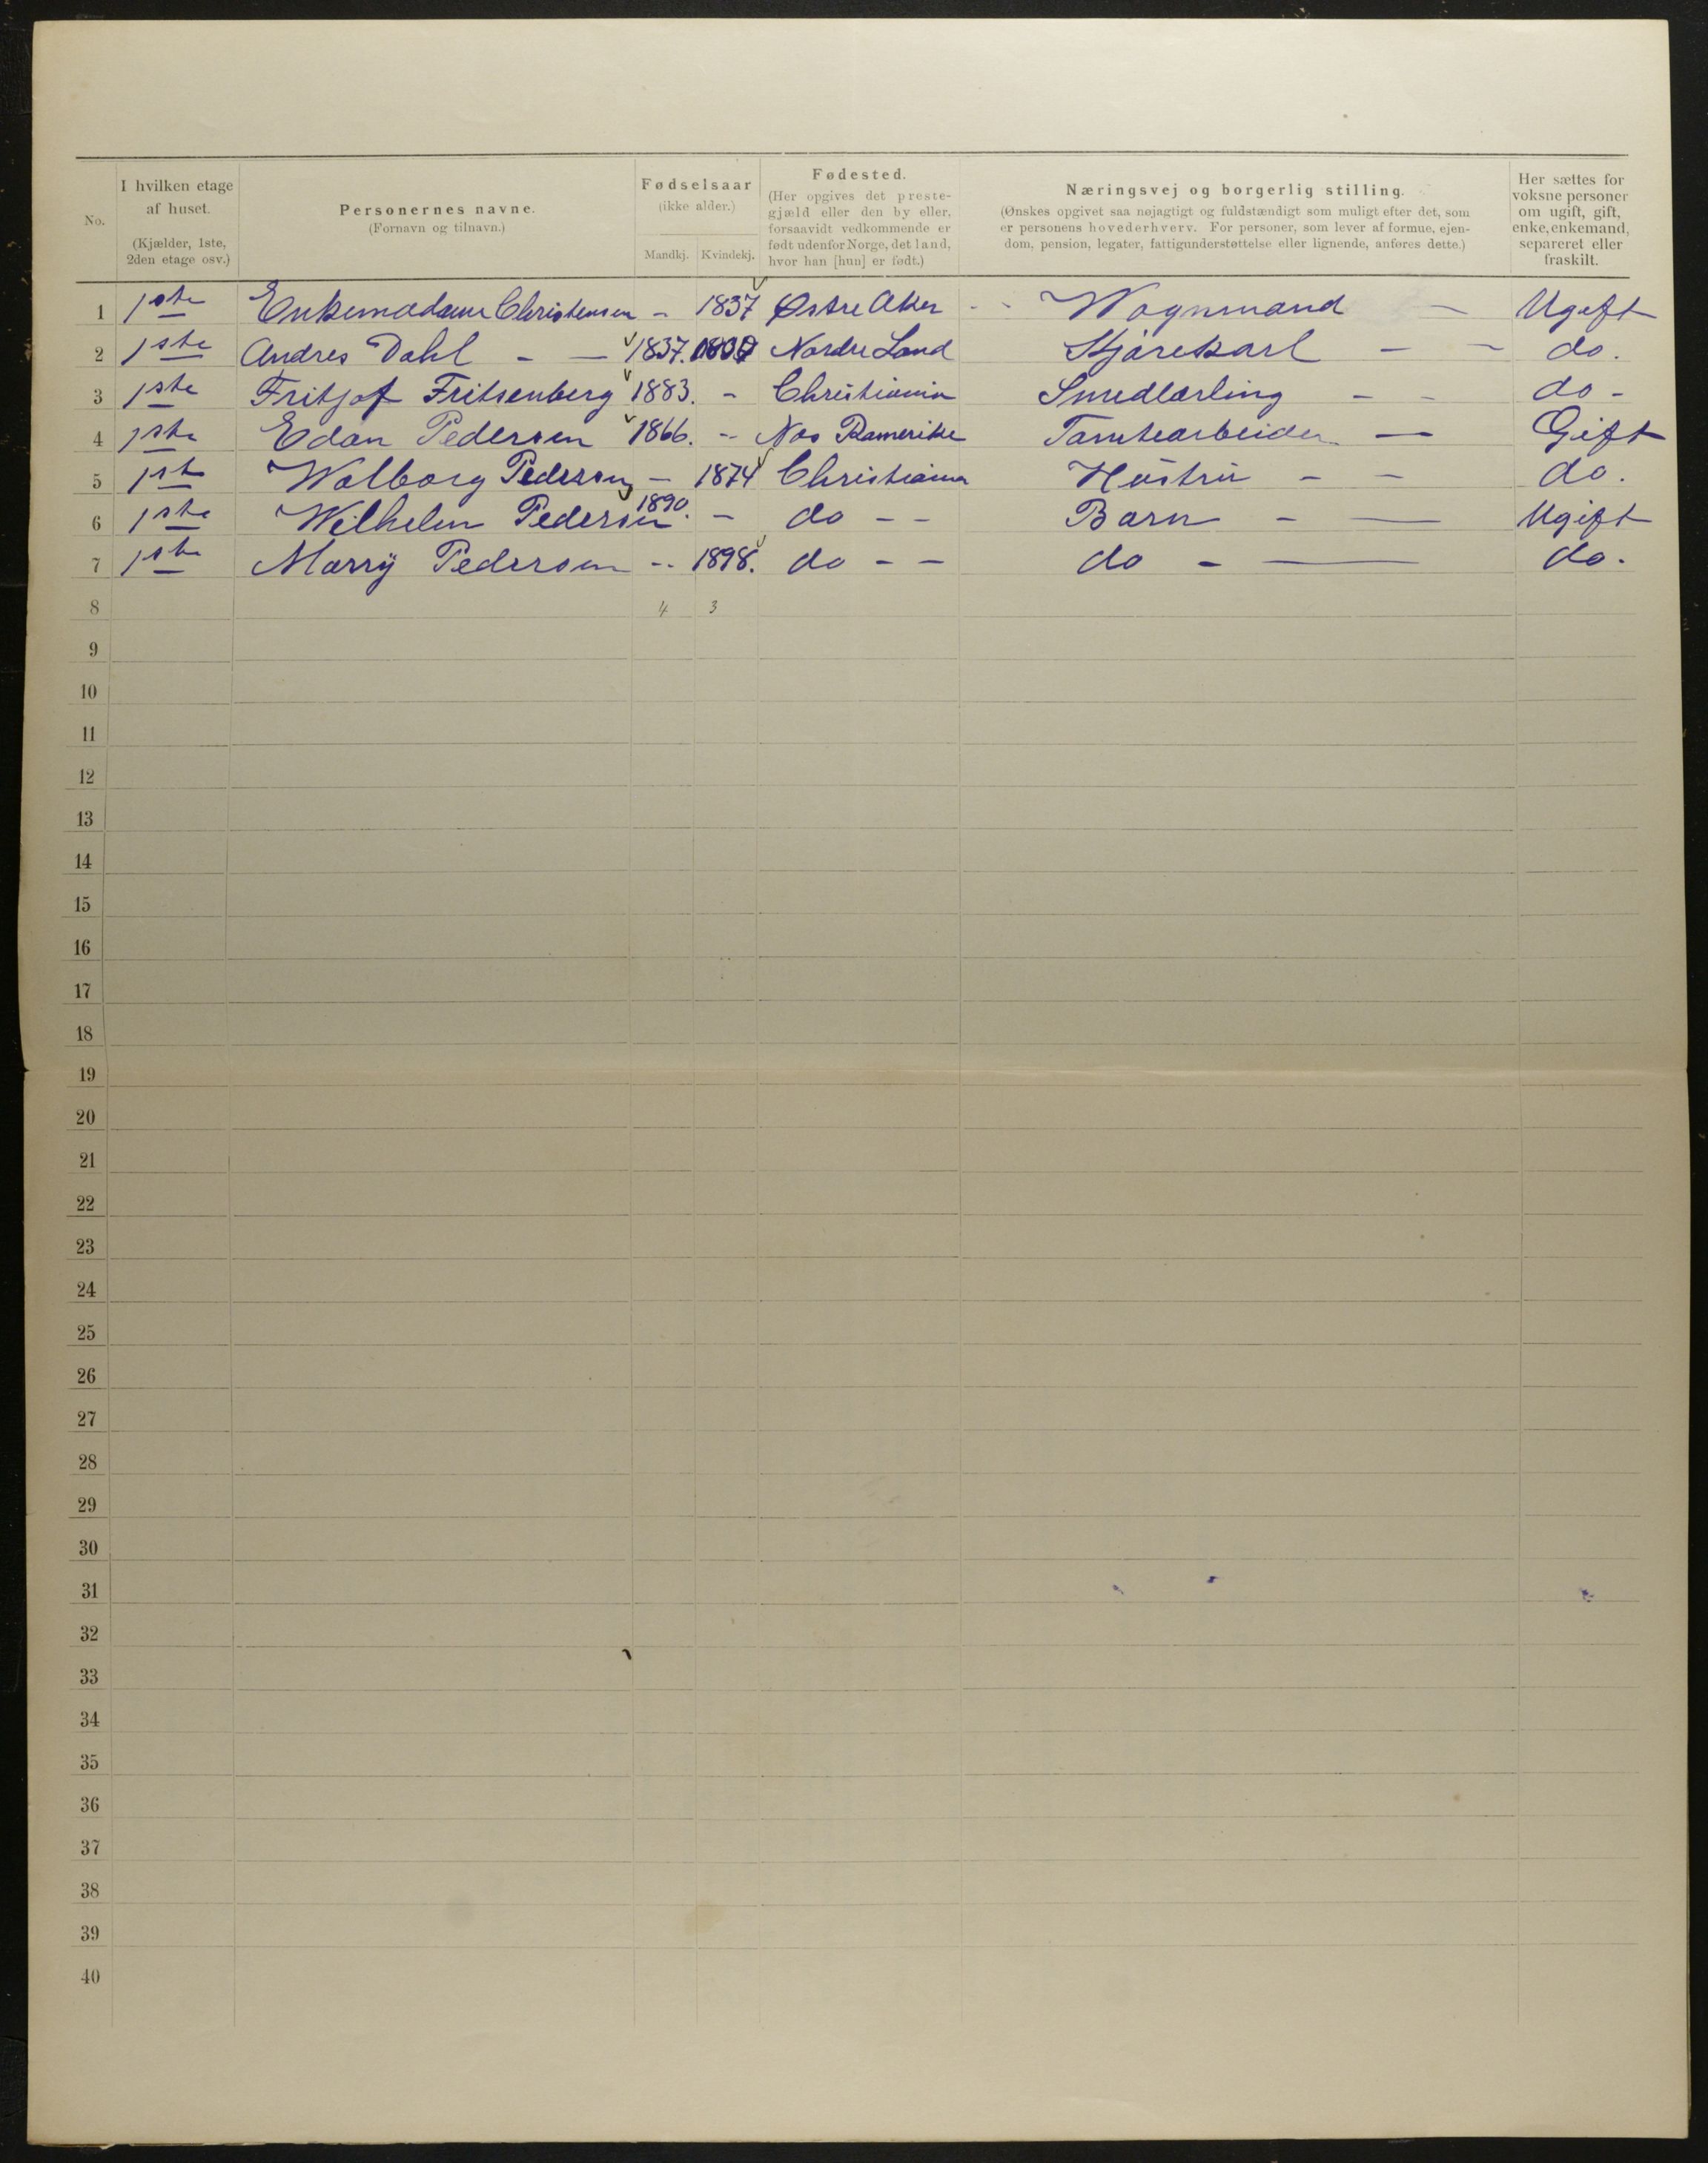 No.
I hvilken etage af huset. (Kjælder, 1ste, 2den etage osv.)
Personernes navne. (Fornavn og tilnavn.)
Fødselsaar (ikke alder.) Mandkj. Kvindekj.
Fødested. (Her opgives det prestegjæld eller den by eller, forsaavidt vedkommende er født udenfor Norge, det land, hvor han [hun] er født.)
Næringsvej og borgerlig stilling. (Ønskes opgivet saa nøjagtigt og fuldstændigt som muligt efter det, som er personens hovederhverv. For personer, som lever af formue, ejendom, pension, legater, fattigunderstøttelse eller lignende, anføres dette.)
Her sættes for voksne personer om ugift, gift, enke, enkemand, separeret eller fraskilt.
1 1ste Enkemadame Christensen - 1837 Østre Aker - - Wognmand - Ugift
2 1ste Andres Dahl - - 1837. Nordre Land Kjørekarl - - do.
3 1ste Fritjof Fritsenberg 1883. - Christiania Smedlærling - - do -
4 1ste Edan Pedersen 1866. - Nos Ramerike Tomtearbeider - Gift
5 1ste Wolborg Pedersen - 1874 Christiania Hustru - - do.
6 1ste Wilhelm Pedersen 1890. - do - - Barn - - Ugift
7 1ste Marry Pedersen - - 1898. do - - do - - do.
8 4 3
9
10
11
12
13
14
15
16
17
18
19
20
21
22
23
24
25
26
27
28
29
30
31
32
33
34
35
36
37
38
39
40